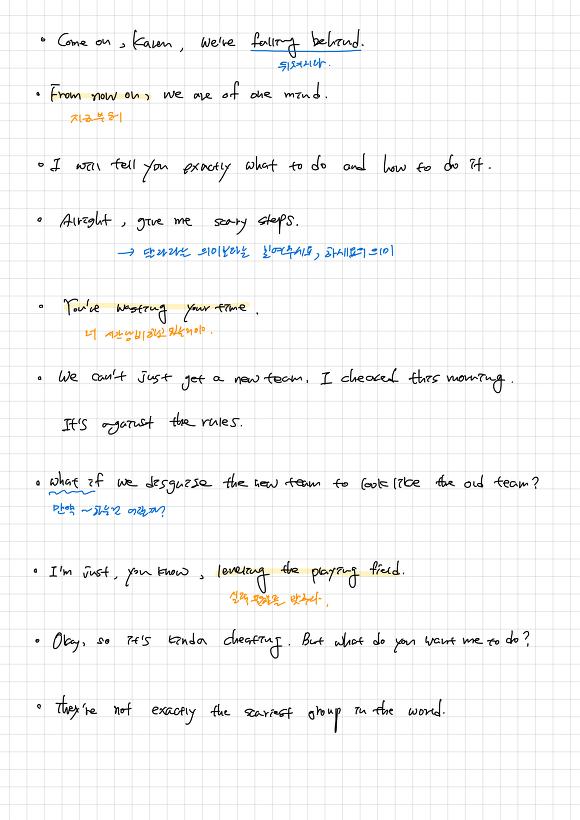 • Come on, Karen, we're falling behind.
뒤쳐지다.
• From now on, we are of one mind.
지금부터
• I will tell you exactly what to do and how to do it.
• Alright, give me scary steps.
→ 의미보다는 보여주세요, 하세요의 의미
• You're wasting your time.
너 시간낭비하고 있는거야.
• We can't just get a new team. I checked this morning.
It's against the rules.
• what if we disguise the new team to look like the old team?
만약 ~하는건 어떨까?
• I'm just, you know, leveling the playing field.
맞추다.
• Okay, so it's kinda cheating. But what do you want me to do?
• They're not exactly the scariest group in the world.